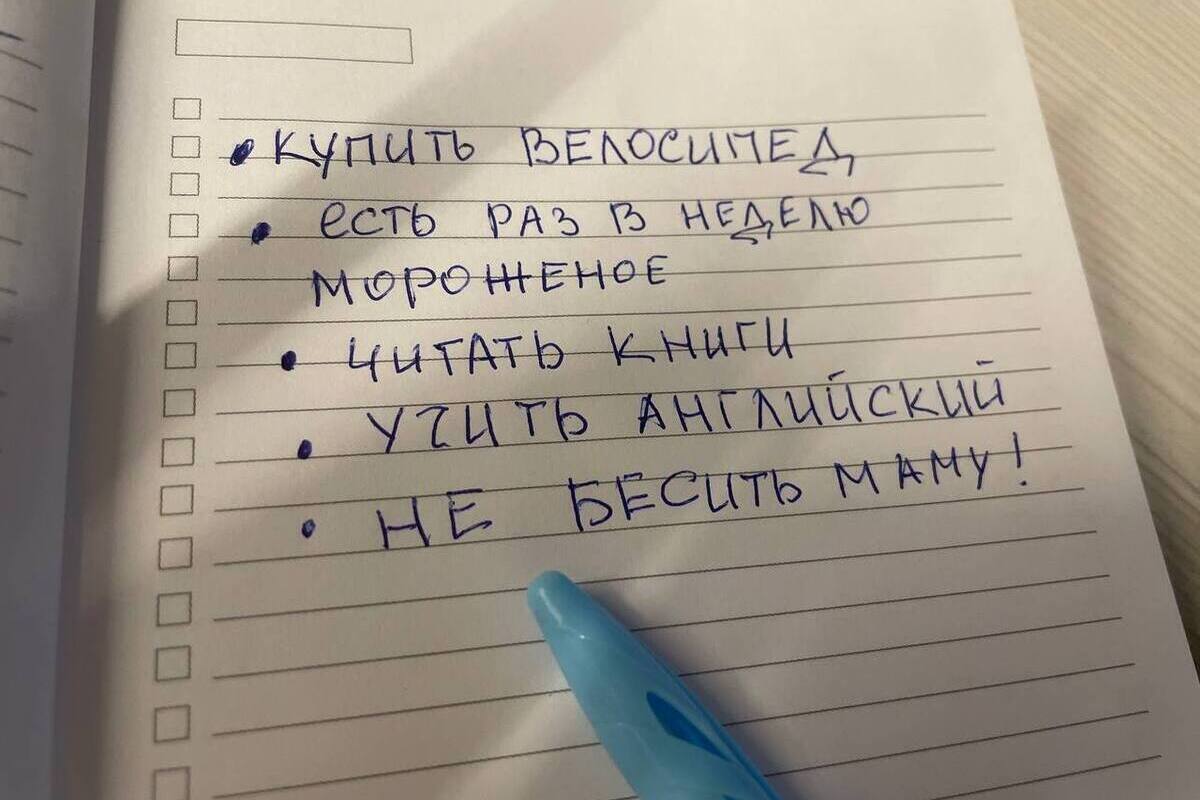 • КУПИТЬ ВЕЛОСИПЕД
• ЕСТЬ РАЗ В НЕДЕЛЮ
МОРОЖЕНОЕ
• ЧИТАТЬ КНИГИ
• УЧИТЬ АНГЛИЙСКИЙ
• НЕ БЕСИТЬ МАМУ!